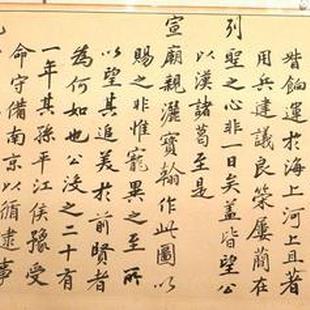 皆餉運於海上河上且著
用兵建議良策屢簡在
列聖之心非一日矣蓋皆望公
以漢諸葛至是
宣廟親灑寶翰作此圖以
賜之非惟寵異之至所
以望其追美於前賢者
為何如也公沒之二十有
一年其孫平江侯豫受
命守備南京以循逮事